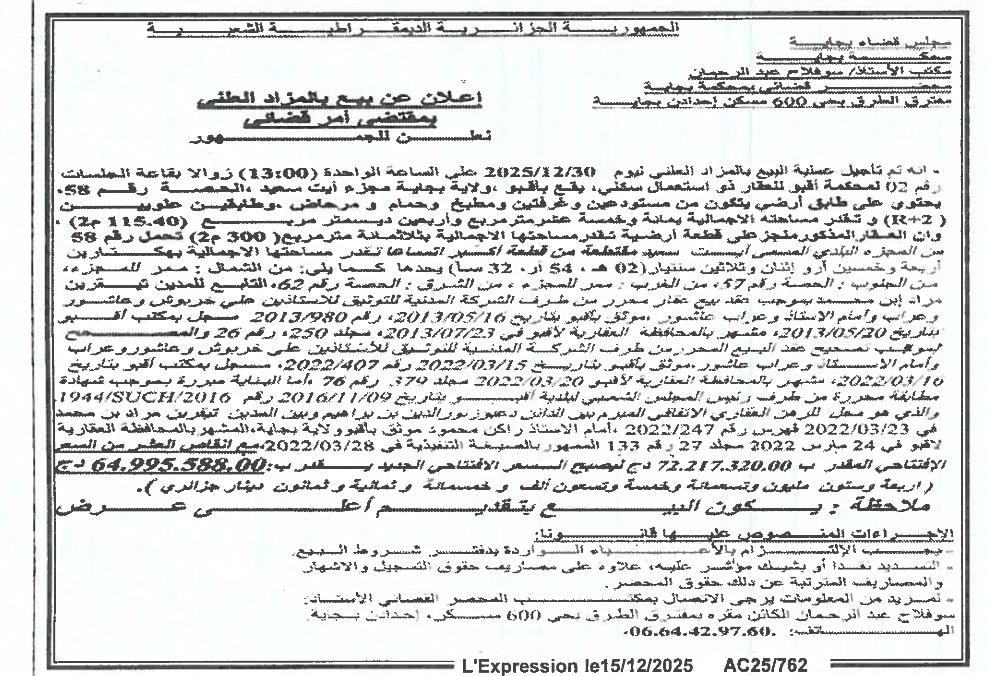 الجمهورية الجزائرية الديمقراطية الشعبية
مجلس قضاء بجاية
محكمة بجاية
مكتب الأستاذ/ سوفلاح عبد الرحمان
محضر قضائي بمحكمة بجاية
مفترق الطرق بحي 600 مسكن إحدادن بجاية
إعلان عن بيع بالمزاد العلني
بمقتضى أمر قضائي
نعلن للجمهور
- انه تم تأجيل عملية البيع بالمزاد العلني ليوم 2025/12/30 على الساعة الواحدة (13:00) زوالا بقاعة الجلسات
رقم 02 لمحكمة أقبو للعقار ذو استعمال سكني، يقع بأقبو، ولاية بجاية مجزء أيت سعيد ،الحصة رقم 58،
يحتوي على طابق أرضي يتكون من مستودعين وغرفتين ومطبخ وحمام و مرحاض ،وطابقين علويين
(R+2) و تقدر مساحته الاجمالية بمائة وخمسة عشر مترمربع وأربعين ديسمتر مربع (115.40 م2)
وان العقار المذكور منجز على قطعة أرضية تقدر مساحتها الاجمالية بثلاثمائة مترمربع( 300 م2) تحمل رقم 58
من المجزء البلدي المسمى أيت سعيد مقتطعة من قطعة أكبر اتساعا تقدر مساحتها الاجمالية بهكتارين
أربعة وخمسين أرو إثنان وثلاثين سنتيار(02 هـ، 54 أر، 32 سأ) يحدها كما يلي: من الشمال : ممر للمجزء،
من الجنوب : الحصة رقم 57، من الغرب : ممر للمجزء ، من الشرق : الحصة رقم 62، التابع للمدين تيفرين
مراد إبن محمد بموجب عقد بيع عقار محرر من طرف الشركة المدنية للتوثيق للأستاذين علي خربوش وعاشور
وعراب وأمام الاستاذ وعراب عاشور ،موثق بأقبو بتاريخ 2013/05/16، رقم 2013/980 مسجل بمكتب أقبو
بتاريخ 2013/05/20، مشهر بالمحافظة العقارية لأقبو في 2013/07/23، مجلد 250، رقم 26 والمصحح
بموجب تصحيح عقد البيع المحرر من طرف الشركة المدنية للتوثيق للأستاذين علي خربوش وعاشور وعراب
وأمام الاستاذ وعراب عاشور ،موثق بأقبو بتاريخ 2022/03/15 رقم 2022/407، مسجل بمكتب أقبو بتاريخ
2022/03/16، مشهر بالمحافظة العقارية لأقبو في 2022/03/20 مجلد 379 رقم 76 ،أما البناية مبررة بموجب شهادة
مطابقة محررة من طرف رئيس المجلس الشعبي لبلدية أقبو بتاريخ 2016/11/09 رقم 1944/SUCH/2016،
والذي هو محل للرهن العقاري الاتفاقي المبرم بين الدائن دعبوز نورالدين بن براهيم وبين المدين تيفرين مراد بن محمد
في 2022/03/23 فهرس رقم 2022/247 ،أمام الاستاذ راكن محمود موثق بأقبو ولاية بجاية،المشهر بالمحافظة العقارية
لاقبو في 24 مارس 2022 مجلد 27 رقم 133 الممهور بالصيغة التنفيذية في 2022/03/28،مع انقاص العشر من السعر
الإفتتاحي المقدر ب 72.217.320.00 دج ليصبح السعر الافتتاحي الجديد يقدر ب: 64.995.588.00 دج
( اربعة وستون مليون وتسعمائة وخمسة وتسعون ألف و خمسمائة و ثمانية و ثمانون دينار جزائري ).
ملاحظة : يكون البيع بتقديم أعلى عرض
الاجراءات المنصوص عليها قانونا:
- يجب الالتزام بالأعباء الواردة بدفتر شروط البيع.
- التسديد نقدا أو بشيك مؤشر عليه، علاوة على مصاريف حقوق التسجيل والاشهار
والمصاريف المترتبة عن ذلك حقوق المحضر.
- لمزيد من المعلومات يرجى الاتصال بمكتب المحضر القضائي الأستاذ:
سوفلاح عبد الرحمان الكائن مقره بمفترق الطرق بحي 600 مسكن، إحدادن بجاية
الهاتف: 06.64.42.97.60.
L'Expression le15/12/2025 AC25/762